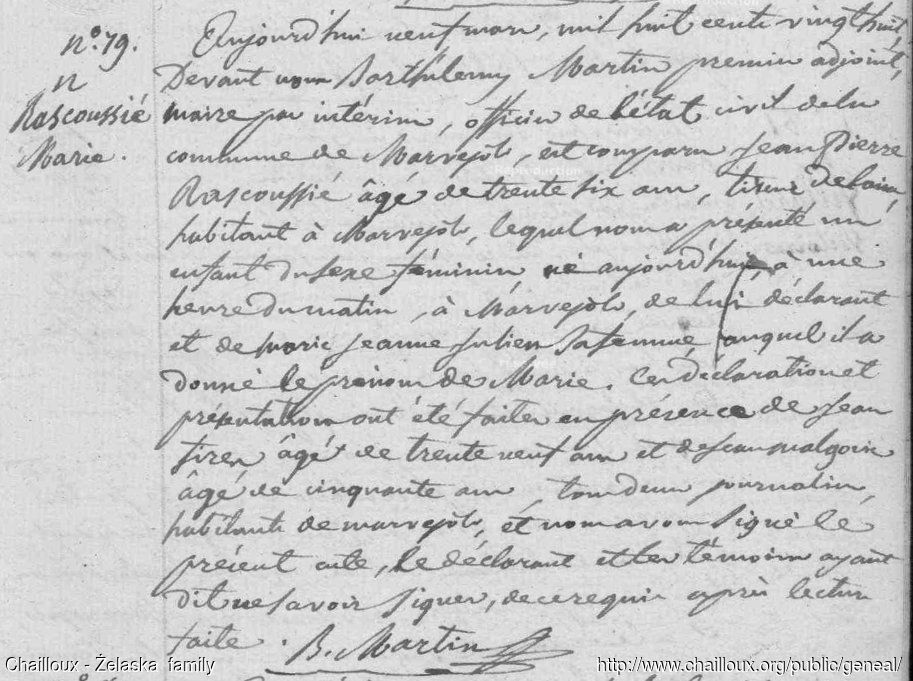 n.° 79.
n
Rascoussié
Marie.
Aujourd'hui neuf mars, mil huit cents vingt huit,
Devant nous Barthélemy Martin premier adjoint,
maire par intérim, officier de l'état civil de la
commune de Marvejols, est comparu Jean Pierre
Rascoussié âgé de trente six ans, tireur de laine,
habitant à Marvejols, lequel nous a présenté un
enfant du sexe féminin né aujourd'hui, à une
heure du matin, à Marvejols, de lui déclarant
et de marie jeanne julien sa femme auquel il a
donné le prénom de Marie. Ces déclaration et
présentation ont été faites en présence de Jean
âgé de trente neuf ans et de jean malgoire
âgé de cinquante ans, tous deux journaliers,
habitants de marvejols, et nous avons signé le
présent acte, le déclarant et les témoins ayant
dit ne savoir signer, de ce requis après lecture
faite. B. Martin
Chailloux - Żelaska family
http://www.chailloux.org/public/geneal/